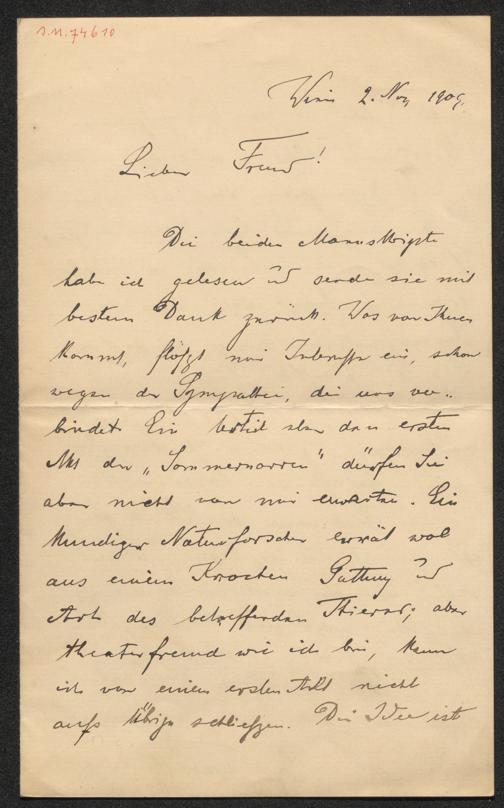 J.N. 74610
Wien 2. Nov. 1909.
Lieber Freund!
Die beiden Manuskripte
habe ich gelesen und sende sie mit
bestem Dank zurück. Was von Ihnen
kommt, flößt mir Interesse ein, schon
wegen der Sympathie, die uns ver-
bindet. Ein Urteil über den ersten
Akt der „Sommernarren" dürfen Sie
aber nicht von mir erwarten. Ein
kundiger Naturforscher errät wol
aus einem Knochen Gattung und
Art des betreffenden Thieres; aber
theaterfremd wie ich bin, kann
ich von einem ersten Akt nicht
aufs Übrige schließen. Die Idee ist